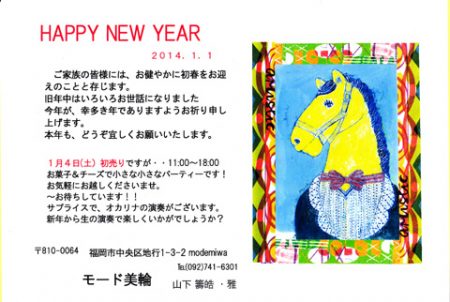 HAPPY NEW YEAR
2014.1.1
ご家族の皆様には、お健やかに初春をお迎
えのことと存じます。
旧年中はいろいろお世話になりました
今年が、幸多き年でありますようお祈り申し
上げます。
本年も、どうぞ宜しくお願いいたします。
1月4日(土) 初売りですが・・11:00~18:00
お菓子&チーズで小さな小さなパーティーです!
お気軽にお越しくださいませ。
~お待ちしています!!
サプライズで、オカリナの演奏がございます。
新年から生の演奏で楽しくいかがでしょうか?
〒810-0064 福岡市中央区地行1-3-2 modemiwa
℡(092)741-6301
モード美輪 山下 籌皓 ・雅